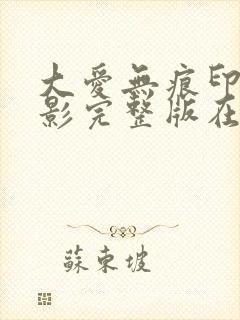 大愛無痕印
影完整版在
蘇東坡